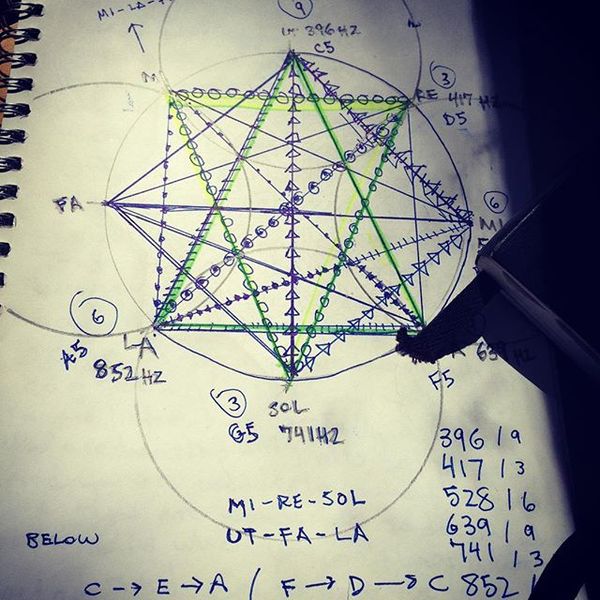 9
MI-LA-
UT 396HZ
C5
3
RE 417 HZ
D5
6
MI
FA
6
A5
LA
852HZ
639 HZ
F5
3
SOL
G5 741HZ
396/9
417/3
528/6
639/9
741/3
852/
MI-RE-SOL
UT-FA-LA
BELOW
C → E → A / F → D → C